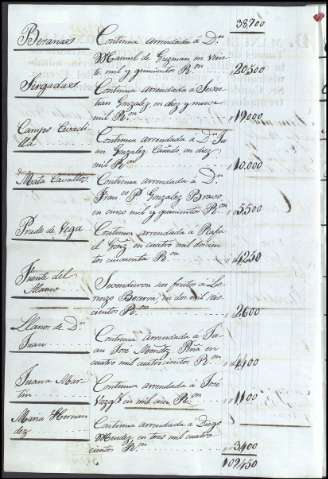 38,700
Beranaes Continua arrendada à Dn.
Manuel de Guzman en vein
te mil y quinientos Rs.n 20500
Continua arrendada à
Gonzalez en diez y nueve
mil Rs.n 19000
Campo Continua arrendada à Dn. Ju
an Gonzalez en diez
mil Rs.n 10.000
Mata Continua arrendada à Dn.
Fran.co P. Gonzalez Bravo
en cinco mil y quinientos Rs.n 5500
Prado de Vega Continua arrendada à Rafa
el Gonz. en cuatro mil doscien
tos cincuenta Rs.n 4250
Fuente del
Alamo Se vendieron sus frutos à Lo
renzo Becerra, en dos mil seis
cientos Rs.n 2600
Llano de Dn.
Juan Continua arrendada à Ju
an José Mendez Peña en
cuatro mil cuatrocientos Rs.n 4400
Juana Mar
tin Continua arrendada à José
en mil cien Rs.n 1100
Maria Hernan
dez Continua arrendada à Diego
Mendez, en tres mil cuatro
cientos Rs.n 3400
109450